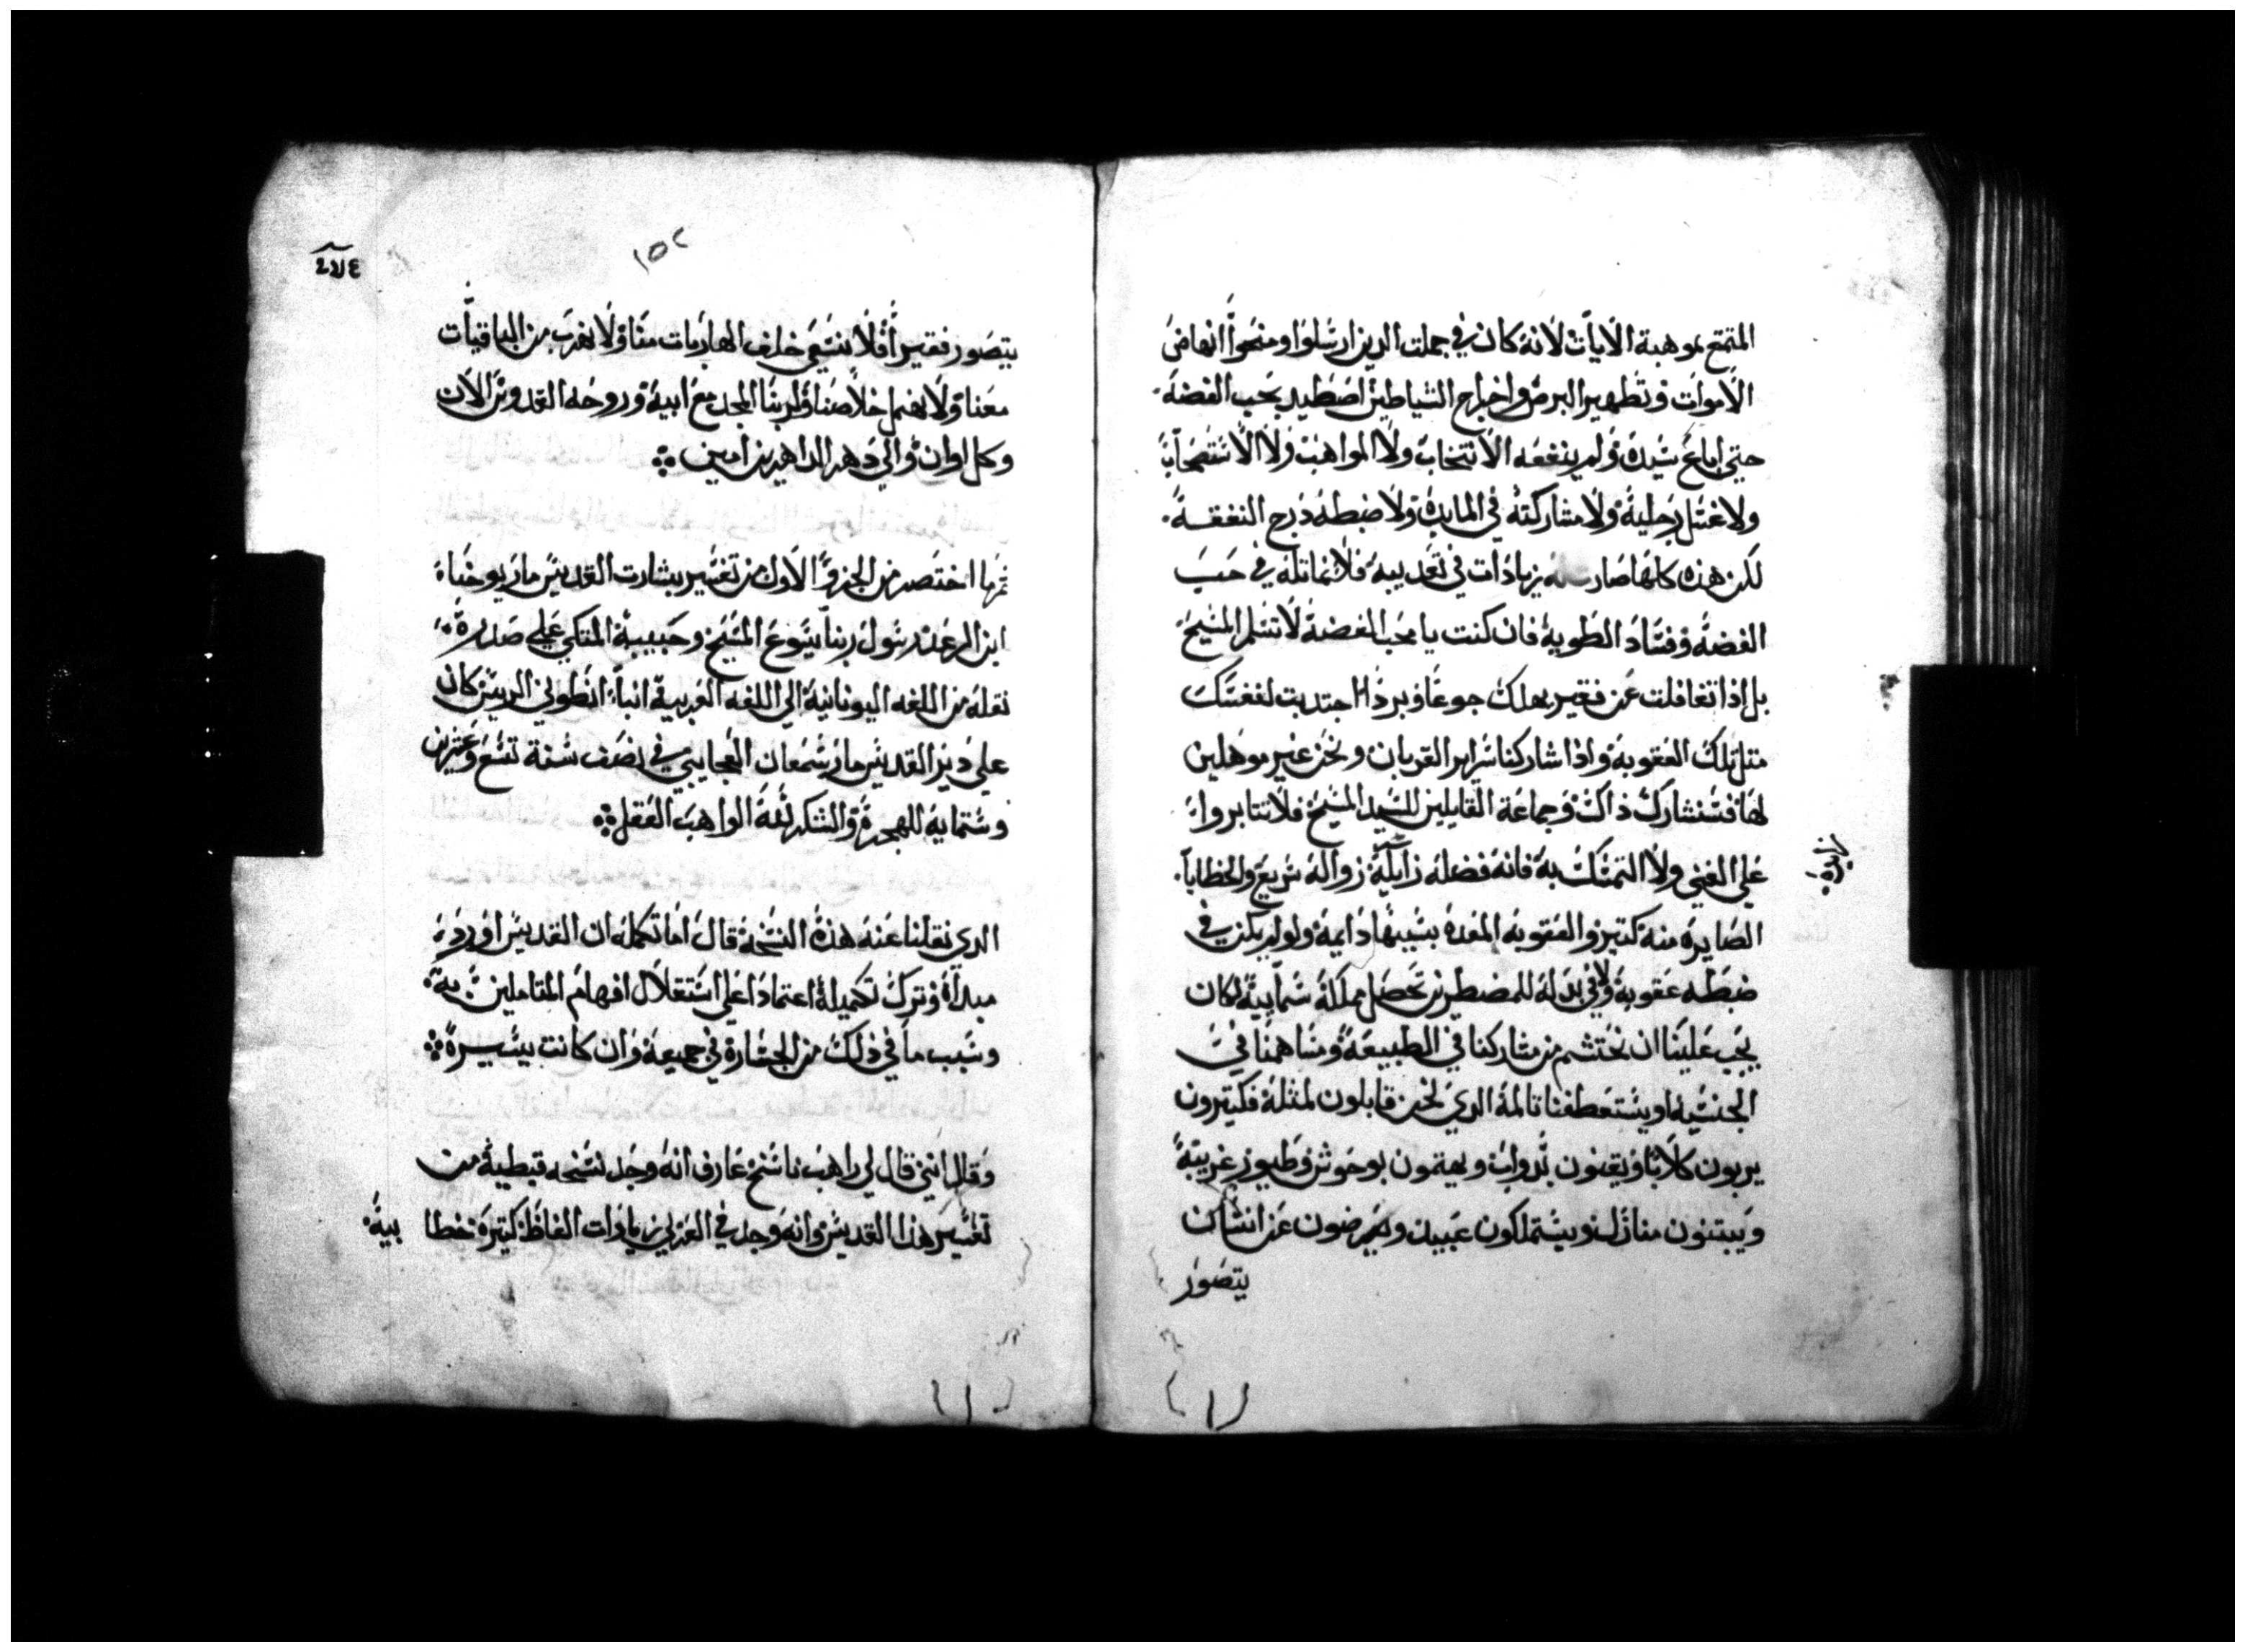 المتمتع بموهبة الايات لانه كان في جملت الدين ارسلوا ومنحوا انهاض
الاموات وتطهير البرص واخراج الشياطين اصطيد بحب الفضه
حتي اباع سيده ولم ينفعه الانتخاب ولا المواهب ولا الاستصحاب
ولا غسل رجليه ولا مشاركته في المايده ولا ضبطه درج النفقه
لكن هذه كلها صارت له زيادات في تعديبه فلا نماتله في حب
الفضه وفساد الطويه فان كنت يا محب الفضه لا تسلم المسيح
بل اذا تغافلت عن فقير يهلك جوعا وبردا اجتديت لنفسك
متل تلك العقوبه واذا شاركنا سراير القربان ونحن غير موهلين
لها فسنشارك ذاك وجماعة القايلين للسيد المسيح فلا تتابروا
علي الغني ولا التمسك به فانه فضله زايله زواله سريع والخطايا
الصايره منه كتير والعقوبه المعده بسببها دايمة ولو لم يكن في
ضبطه عقوبه ولا في بدله للمضطرين تحصل مملكة سمايية لكان
يجب علينا ان نحتشم من مشاركنا في الطبيعة ومساهمنا في
الجنسيه او يستعطفنا تالمه الدي نحن قابلون لمثله فكتيرون
يربون كلابا ويقنون دواب ويهتمون بوحوش وطيور غريبة
ويبتنون منازل ويستملكون عبيد ويعرضون عن انسان
يتصور
١٥٢
يتصور فقيرا فلا نسعي خلف الهاربات منا ولا نهرب من الباقيات
معنا ولا نهمل خلاصنا ولربنا المجد مع ابيه وروحه القدوس الان
وكل اوان والي دهر الداهرين امين
تم ما اختصر من الجزو الاول من تفسير بشارت القديس مار يوحنا
ابن الرعد رسول ربنا يسوع المسيح وحبيبه المتكي علي صدره
نقله من اللغه اليونانية الي اللغه العربية انبا انطوني الريس كان
علي دير القديس مار سمعان العجايبي في نصف سنة تسع وعشرين
وستمايه للهجرة والشكر لله الواهب العقل
الدي نقلنا عنه هذه النسخه قال اما تكمله ان القديس اورد
مبداه وترك تكميله اعتمادا علي استقلال افهام المتاملين به
وسبب ما في ذلك من الجسارة في جميعه وان كانت يسيرة
وقال انني قال لي راهب ناسخ عارف انه وجد نسخه قبطية من
تفسير هذا القديس وانه وجد في العربي زيادات الفاظ كتيرة خطا بية